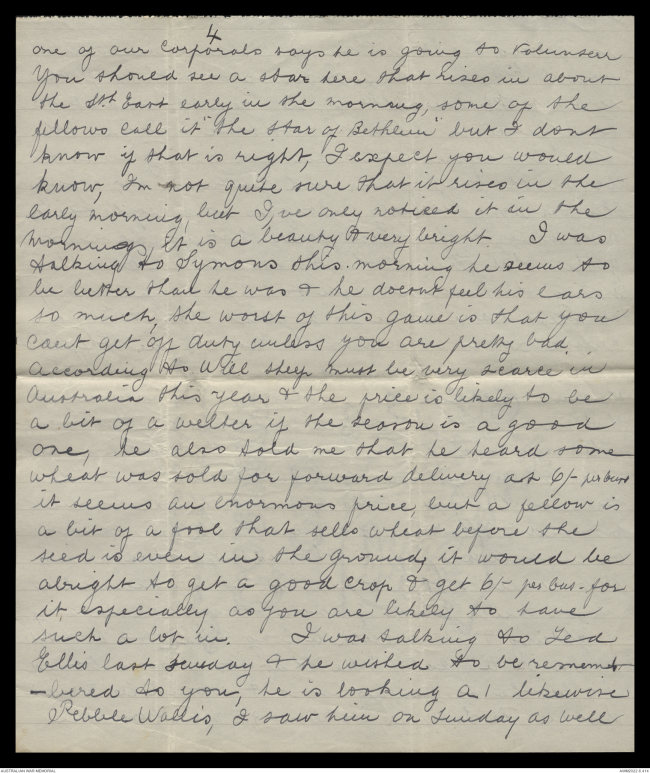 4
one of our Corporals says he is going to Volunteer
You should see a star here that rises in about
the Sth East early in the morning, some of the
fellows call it "the Star of Bethlem" but I dont
know if that is right, I expect you would
know, I'm not quite sure that it rises in the
early morning, but I,ve only noticed it in the
morning, it is a beauty & very bright I was
talking to Symons this morning he seems to
be better than he was & he doesn't feel his ears
so much, the worst of this game is that you
cant get off duty unless you are pretty bad
According to Will sheep must be very scarce in
Australia this year & the price is likely to be
a bit of a welter if the season is a good
one, he also told me that he heard some
wheat was sold for forward delivery at 6/- per bus
it seems an enormous price, but a fellow is
a bit of a fool that sells wheat before the
seed is even in the ground, it would be
alright to get a good crop & get 6/- per bus - for
it, especially as you are likely to have
such a lot in. I was talking to Ted
Ellis last Sunday & he wished to be remem-
-bered to you, he is looking a1 likewise
Pebble Wallis, I saw him on Sunday as well
AUSTRALIAN WAR MEMORIAL